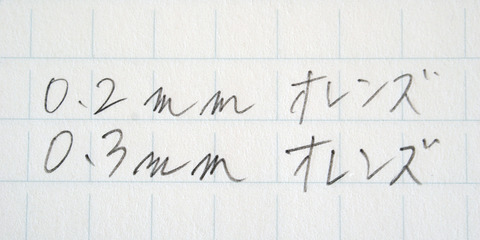 0.2mm オレンズ
0.3mm オレンズ